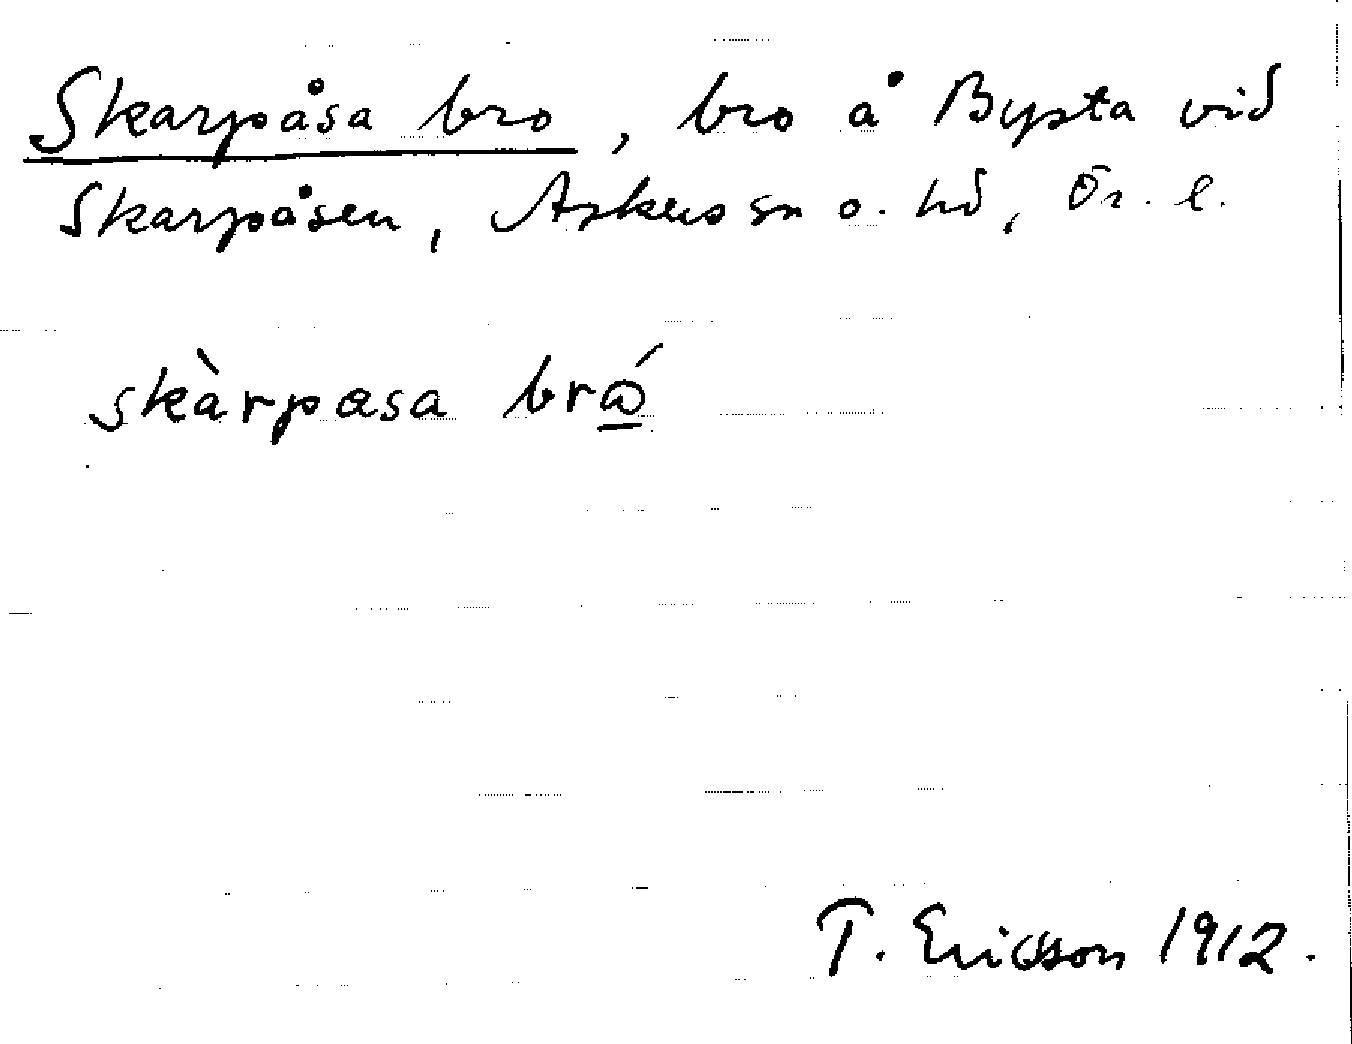 Skarpåsa bro, bro å Bysta vid
Skarpåsen, Askers sn o. hd, Ör. l.
skàrpasa brǻ
T. Ericsson 1912.